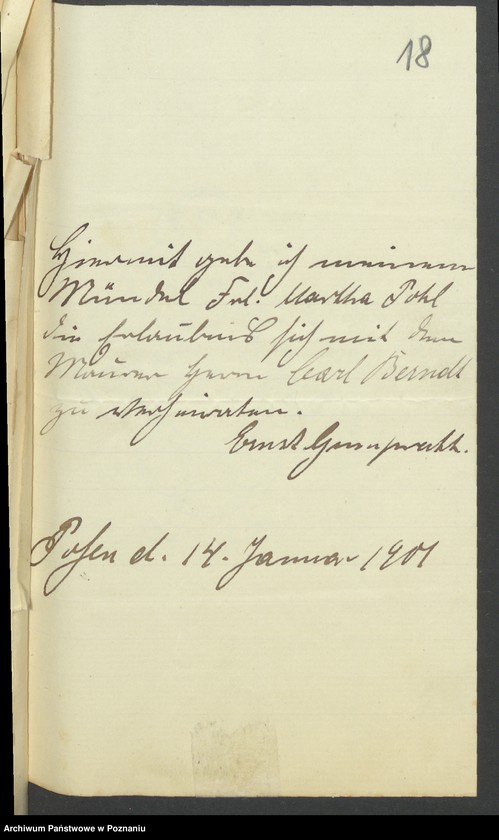 18
Hiermit gebe ich meinem
Mündel Frl. Martha Pohl
die Erlaubnis sich mit dem
Maurer Herrn Carl Berndt
zu verheiraten.
Ernst Gumprecht.
Posen d. 14. Januar 1901
Archiwum Państwowe w Poznaniu